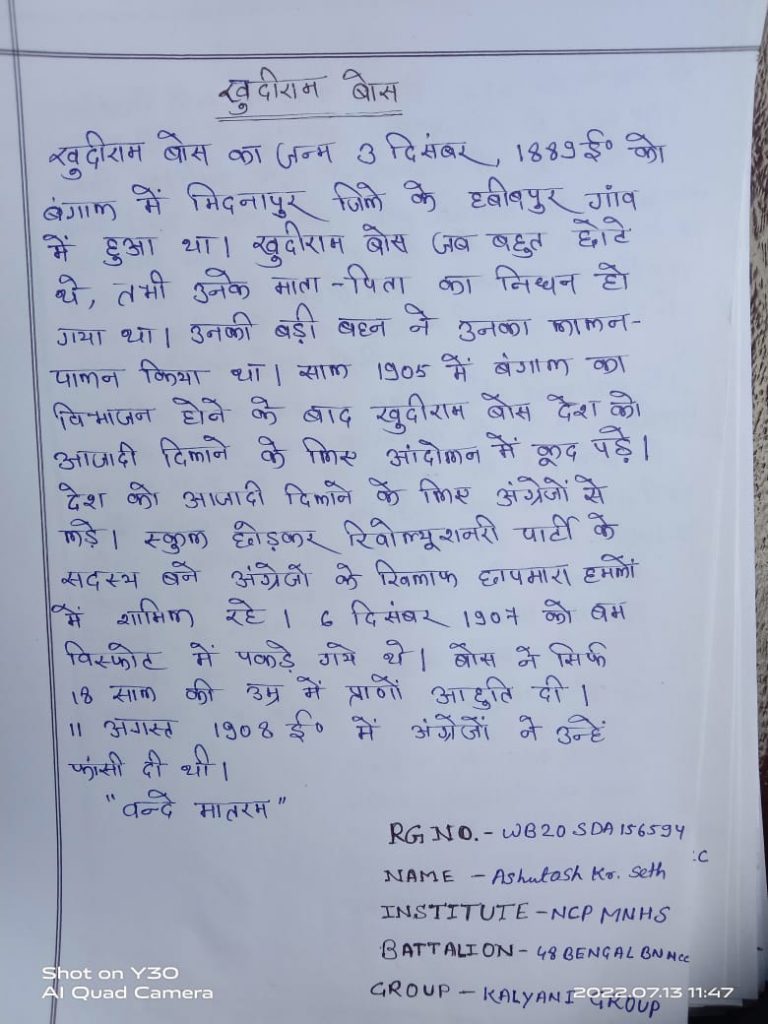 खुदीराम बोस
खुदीराम बोस का जन्म 3 दिसंबर, 1889 ई० को
बंगाल में मिदनापुर जिले के हबीबपुर गांव
में हुआ था। खुदीराम बोस जब बहुत छोटे
थे, तभी उनके माता-पिता का निधन हो
गया था। उनकी बड़ी बहन ने उनका लालन-
पालन किया था। साल 1905 में बंगाल का
विभाजन होने के बाद खुदीराम बोस देश को
आजादी दिलाने के लिए आंदोलन में कूद पड़े।
देश को आजादी दिलाने के लिए अंग्रेजों से
लड़े। स्कुल छोड़कर रिवोल्यूशनरी पार्टी के
सदस्य बने अंग्रेजों के खिलाफ छापमारा हमलों
में शामिल रहे। 6 दिसंबर 1907 को बम
विस्फोट में पकड़े गये थे। बोस ने सिर्फ
18 साल की उम्र में प्राणों आहुति दी।
11 अगस्त 1908 ई० में अंग्रेजों ने उन्हें
फांसी दी थी।
"वन्दे मातरम"
RG NO.- WB20SDA156594
:C
NAME - Ashutosh Kr. Seth
INSTITUTE - NCP MNHS
BATTALION - 48 BENGAL BN NCC
GROUP - KALYANI GROUP
Shot on Y30
AI Quad Camera
2022.07.13 11:47